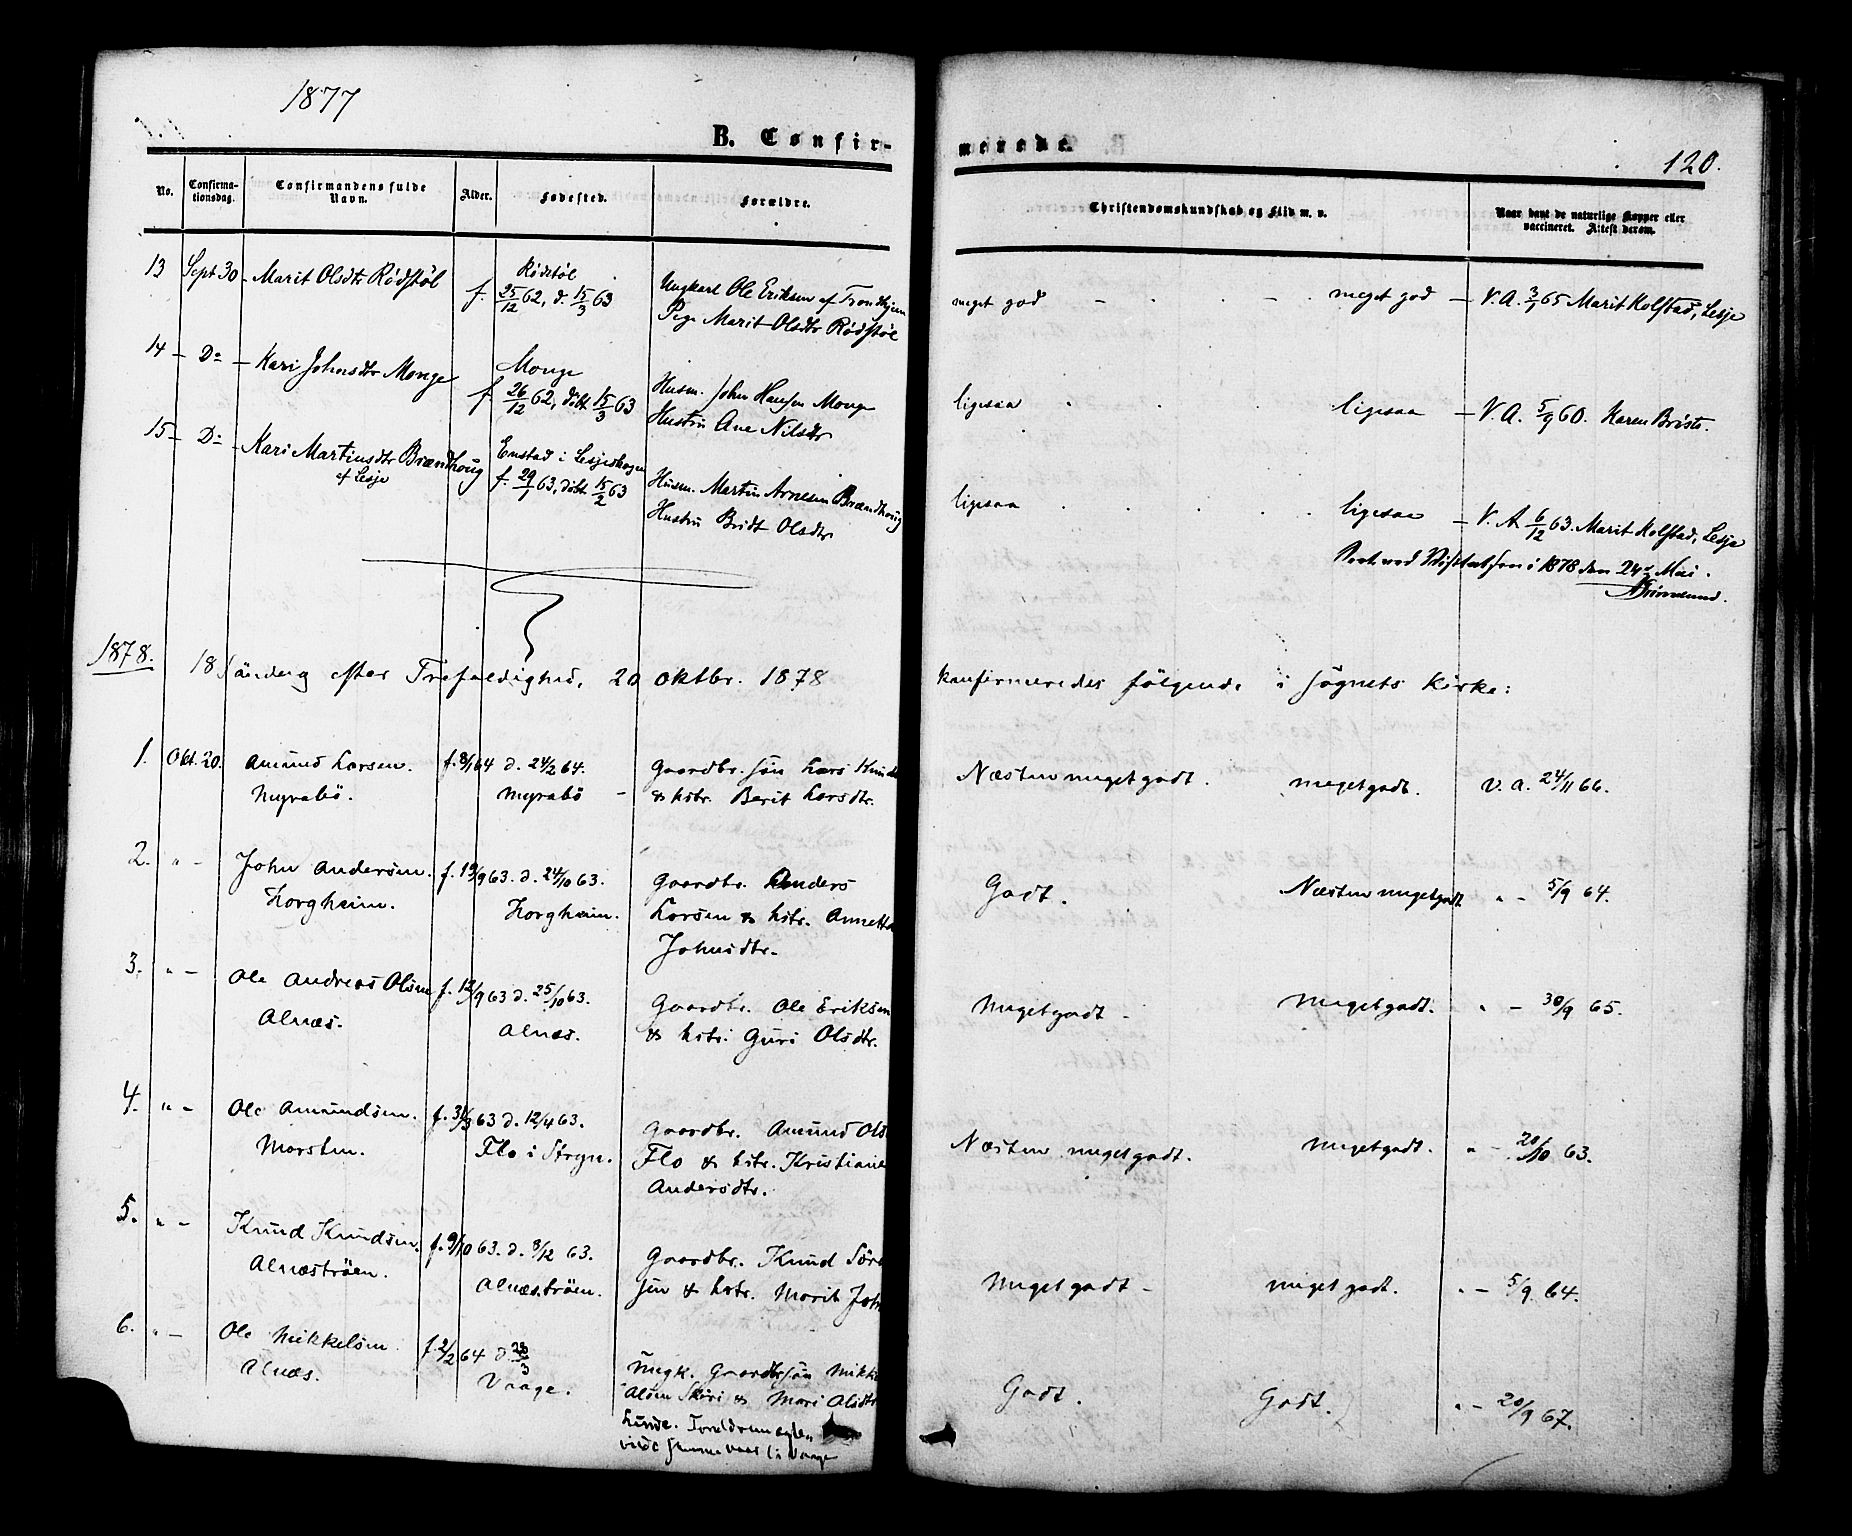 1877
B. Confir-
merede.
120.
No.
Confirma-
tionsdag.
Confirmandens fulde
Navn.
Alder.
Fødested.
Forældre.
Christendomskundskab og Flid m. v.
Naar havt de naturlige Kopper eller
vaccineret. Attest derom.
13 Sept 30 - Marit Olsdtr Rödstöl
Rödstöl
f. 25/12 62, d. 15/3 63
Ungkarl Ole Eriksen af Trondhjem
Pige Marit Olsdtr Rödstöl
meget god - meget god - V.A. 3/1 65 Marit Kolstad, Lesje
14 - Do - Kari Johnsdtr Monge
Monge
f 26/12 62, döbt 15/3 63
Husm. John Hansen Monge
Hustru Ane Nilsdtr
ligesaa ligesaa - V. A. 5/9 60. Karen Briste.
15 - Do - Kari Martinsdtr Brændhoug
af Lesje
Enstad i Lesjeskogen
f. 29/1 63, döbt 15/2 63
Husm. Martin Arnesen Brændhoug
Hustru Bridt Olsdtr
ligesaa ligesaa - V. A 6/12 63. Marit Kolstad, Lesje
Seet ved Visitatsen i 1878 den 24de Mai.
1878.
18 Söndag efter Trefoldighed, 20 oktbr. 1878 konfirmeredes följende i Sognets Kirke:
1. Okt. 20. Amund Larsen.
Myrabö.
f. 8/1 64 d. 24/2 64.
Myrabö -
Gaardbr. sön Lars Knud
& hstr. Berit Larsdtr.
Næsten meget godt. meget godt. V. A. 24/11 66.
2. " - John Andersen.
Horgheim.
f. 19/9 63. d. 24/10 63.
Horgheim.
Gaardbr. Anders
Larsen & hstr. Annette
Johnsdtr.
Godt. Næsten meget godt " - 5/9 64.
3. " - Ole Andreas Olsen
Alnæs.
f. 12/9 63 d. 25/10 63.
Alnæs.
Gaardbr. Ole Eriksen
& hstr. Guri Olsdtr.
Meget godt - Meget godt. " - 30/9 65.
4. " - Ole Amundsen.
Marsten.
f. 31/3 63 d. 12/4 63.
Flo i Stryn.
Gaardbr. Amund Ols
Flo & hstr. Kristiane
Andersdtr.
Næsten meget godt. Meget godt. " - 20/10 63.
5. " - Knud Knudsen.
Alnæströen.
f. 9/10 63. d. 8/12 63.
Alnæströen.
Gaardbr. Knud Söre
sen & hstr. Marit Joh
Meget godt - meget godt. " - 5/9 64.
6. " - Ole Mikkelsen
Alnæs.
f. 2/2 64 d 28/3
Vaage.
Ungk. Gaardbrsön Mikk
Olsen Skiri & Mari Olsdtr
Lunde.
Godt. Godt. " - 20/9 67.